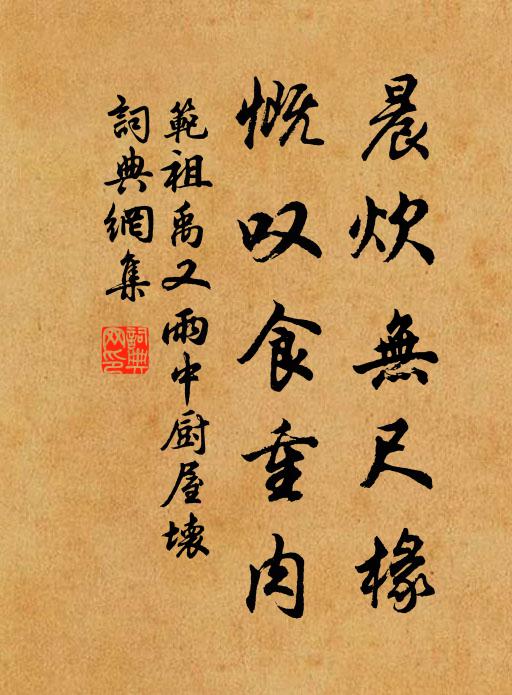 晨炊無尺椽
慨叹食重肉
範祖禹又雨中厨屋壞
詞典網集
詞典網印